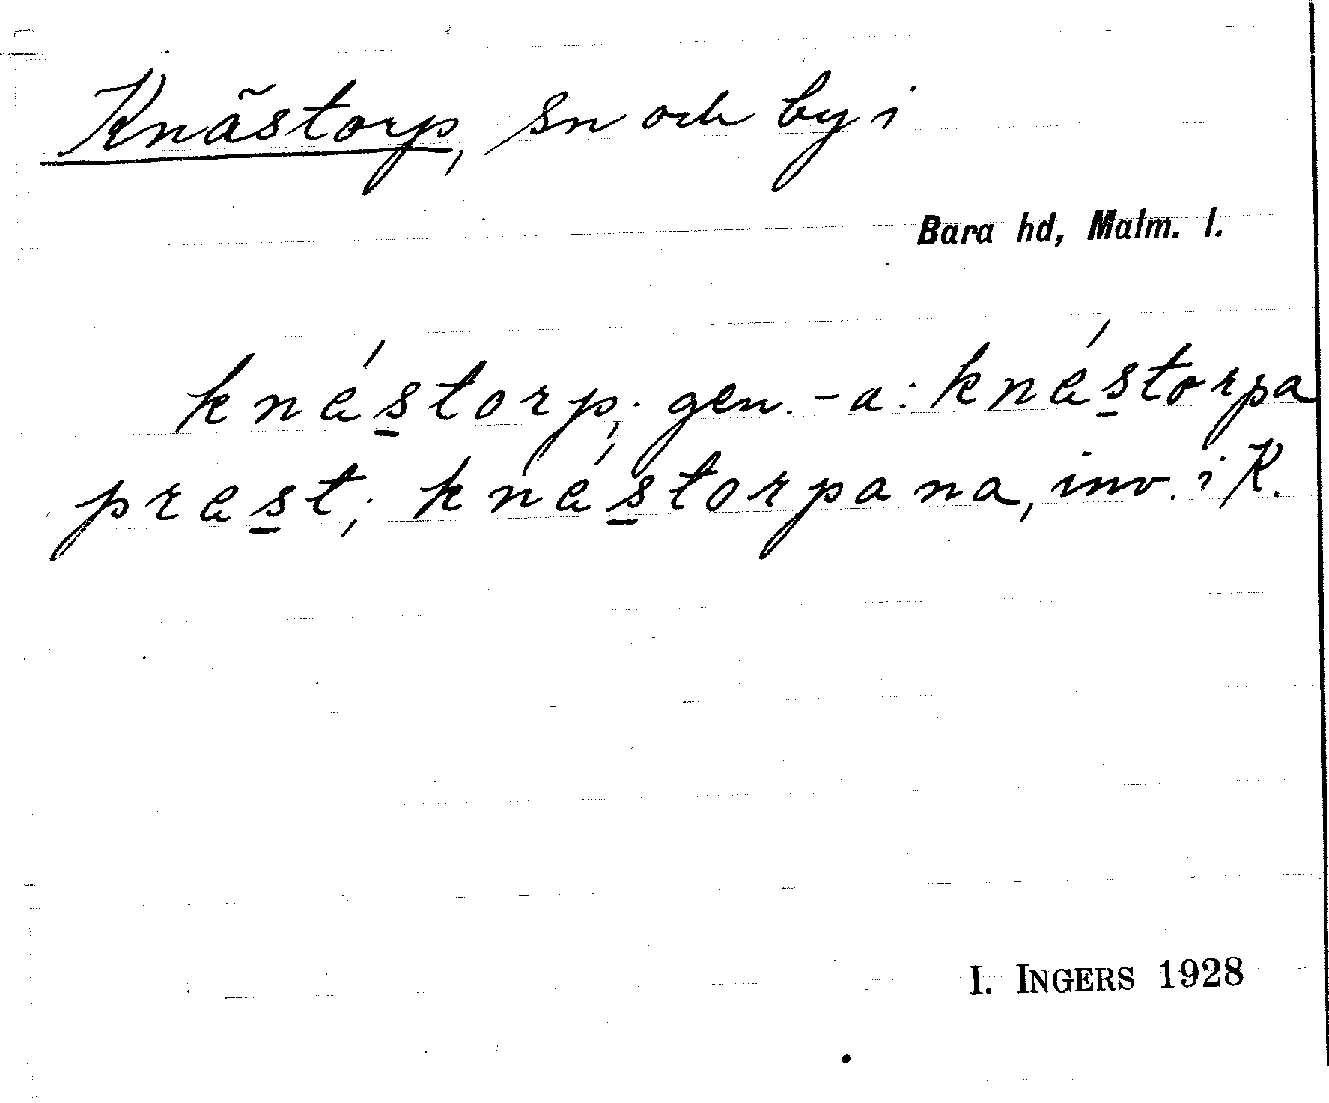 Knästorp, Sn och by i
Bara hd, Malm. l.
knéstorp; gen. -a: knéstorpa
prest; knéstorpana, inv. i K.
I. INGERS 1928